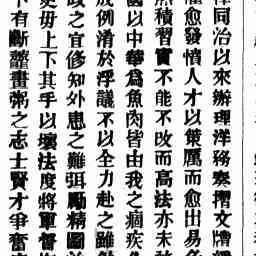 擇同治以來辦理洋務奏摺文牘
愈發憤人才以策厲而愈出易
然積習實不能不改而高法亦未
國以中華爲魚肉皆由我之痼疾
成例淆於浮議不以全力赴之雖
政之宜修知外患之難弭勵精圖
更毋上下其手以壞法度將軍督
下有斷虀畫粥之志士賢才爭奮